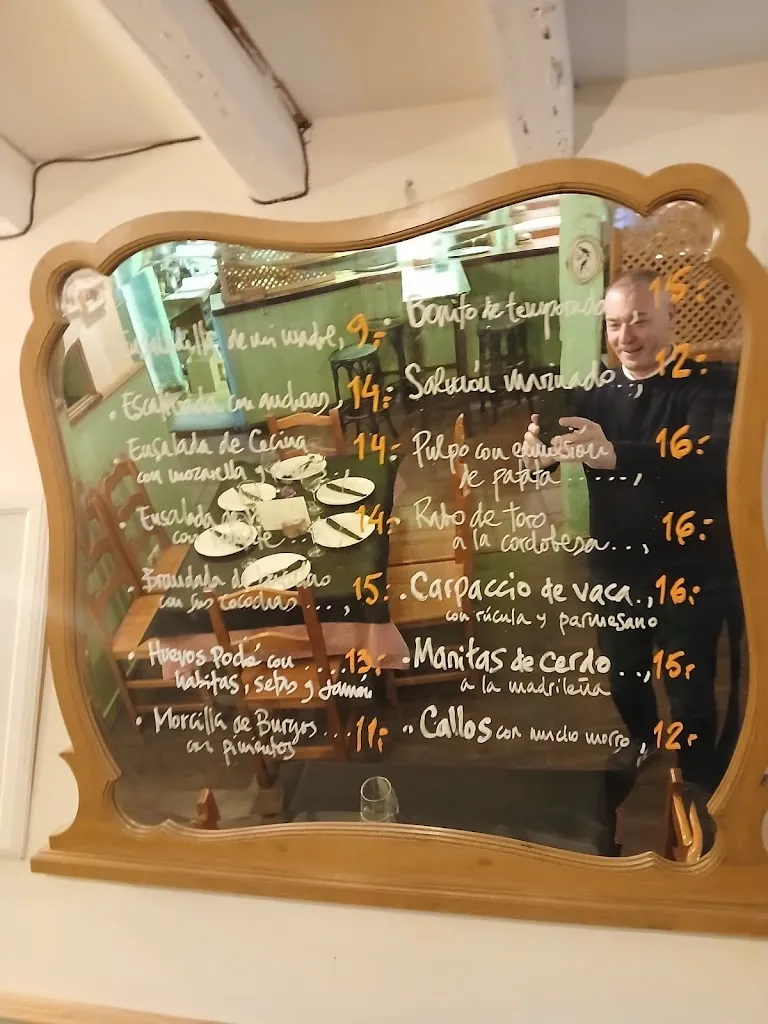 de mi madre, 9.-
Escalivada con anchoas, 14.-
Ensalada de Cecina 14.-
con mozarella y
Ensalada de 14.-
con
Brandada de 15.-
con sus cocochas...,
Huevos Poché con .... 13.-
habitas, setas y jamón
Morcilla de Burgos ... 11.-
con pimientos
Bonito de temporada 15.-
Salmón marinado.., 12.-
Pulpo con emulsión 16.-
de patata ......,
Rabo de toro 16.-
a la cordobesa...,
Carpaccio de vaca., 16.-
con rúcula y parmesano
Manitas de cerdo .., 15.-
a la madrileña
Callos con mucho morro, 12.-